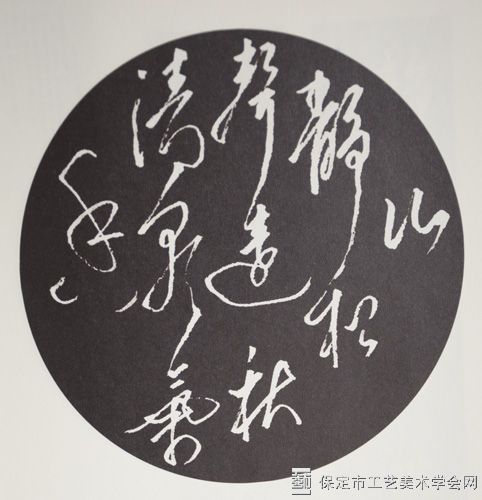 山
静松
声遠秋
清泉氣
香
保定市工艺美术学会网